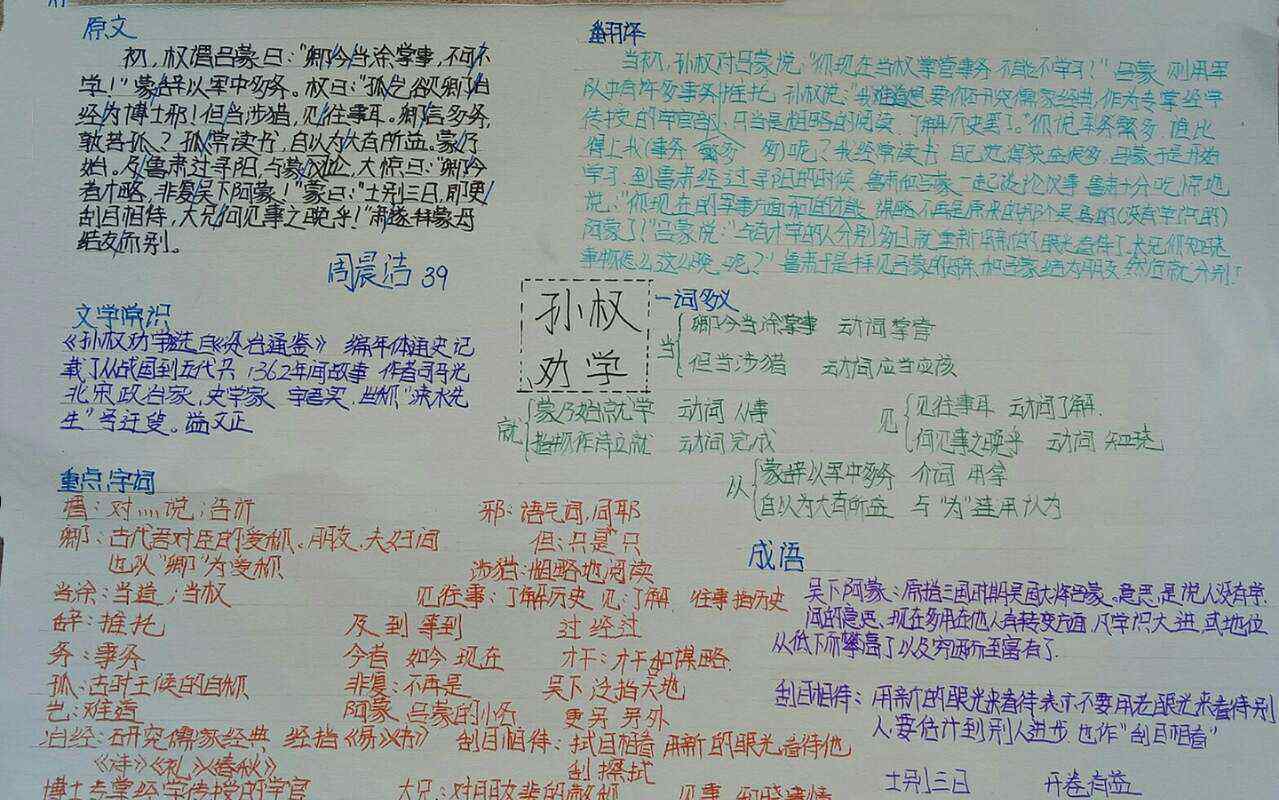 原文
初，权谓吕蒙曰："卿今当涂掌事，不可不
学！"蒙辞以军中多务。权曰："孤岂欲卿治
经为博士邪！但当涉猎，见往事耳。卿言多务，
孰若孤？孤常读书，自以为大有所益。"蒙乃
始。及鲁肃过寻阳，与蒙论，大惊曰："卿今
者才略，非复吴下阿蒙！"蒙曰："士别三日，即更
刮目相待，大兄何见事之晚乎！"肃遂拜蒙母
结友而别。
周晨洁 39
翻译
当初，孙权对吕蒙说："你现在当权掌管事务 不能不学习！"吕蒙 则用军
队中有许多事务推托 孙权说："我难道是要你研究儒家经典，作为专掌经学
传授的学官 只当是粗略的阅读 了解历史罢了。"你说军务繁多 谁比
得上我(事务 繁多 )呢？我经常读书 自己觉得获益很多 吕蒙于是开始
学习 到鲁肃经过寻阳的时候 鲁肃和吕蒙一起谈论议事 鲁肃十分吃惊地
说："你现在的军事方面 才能 谋略 不再是原来的那个吴县的(没有学识的)
阿蒙了！"吕蒙说："与有才学的人分别多日就重新 新的眼光看待了 大兄你知晓
事物怎么这么晚 呢？"鲁肃于是拜见吕蒙的母亲 和吕蒙结为朋友 然后就分别了
孙权
劝学
文学常识
《孙权劝学》选自《资治通鉴》 编年体通史 记
载了从战国到五代共 1362年间故事 作者司马光
北宋政治家，史学家 字君实，世称"涑水先
生"号迂叟。谥文正
一词多义
当 卿今当涂掌事 动词 掌管
但当涉猎 动词 应当应该
就 蒙乃始就学 动词 从事
指物作诗立就 动词 完成
见 见往事耳 动词 了解
何见事之晚乎 动词 知晓
以 蒙辞以军中多务 介词 用拿
自以为大有所益 与"为"连用 认为
重点字词
谓：对……说；告诉
邪：语气词，同耶
卿：古代君对臣的爱称。朋友、夫妇间
也以"卿"为爱称
但：只是 只
涉猎：粗略地阅读
当涂：当道；当权
见往事：了解历史 见：了解 往事指历史
辞：推托
及 到 等到
过 经过
务：事务
今者 如今 现在
才：才干和谋略
孤：古时王侯的自称
非复：不再是
吴下 泛指
岂：难道
阿蒙 吕蒙的小名
更 另 另外
治经：研究儒家经典 经指《易》《书》
刮目相待：拭目相看 用新的眼光看待他
《诗》《礼》《春秋》
刮 擦拭
博士 专掌经学传授的学官
大兄：对朋友辈的敬称
见事 知晓事情
成语
吴下阿蒙：原指三国时期吴国大将吕蒙。意思是说人没有学
问的意思、现在多用在他人有转变方面，凡学识大进，或地位
从低下而攀高了以及穷困而至富有了.
刮目相待：用新的眼光来看待 表示不要用老眼光来看待别
人，要估计到别人进步 也作"刮目相看"
士别三日
开卷有益